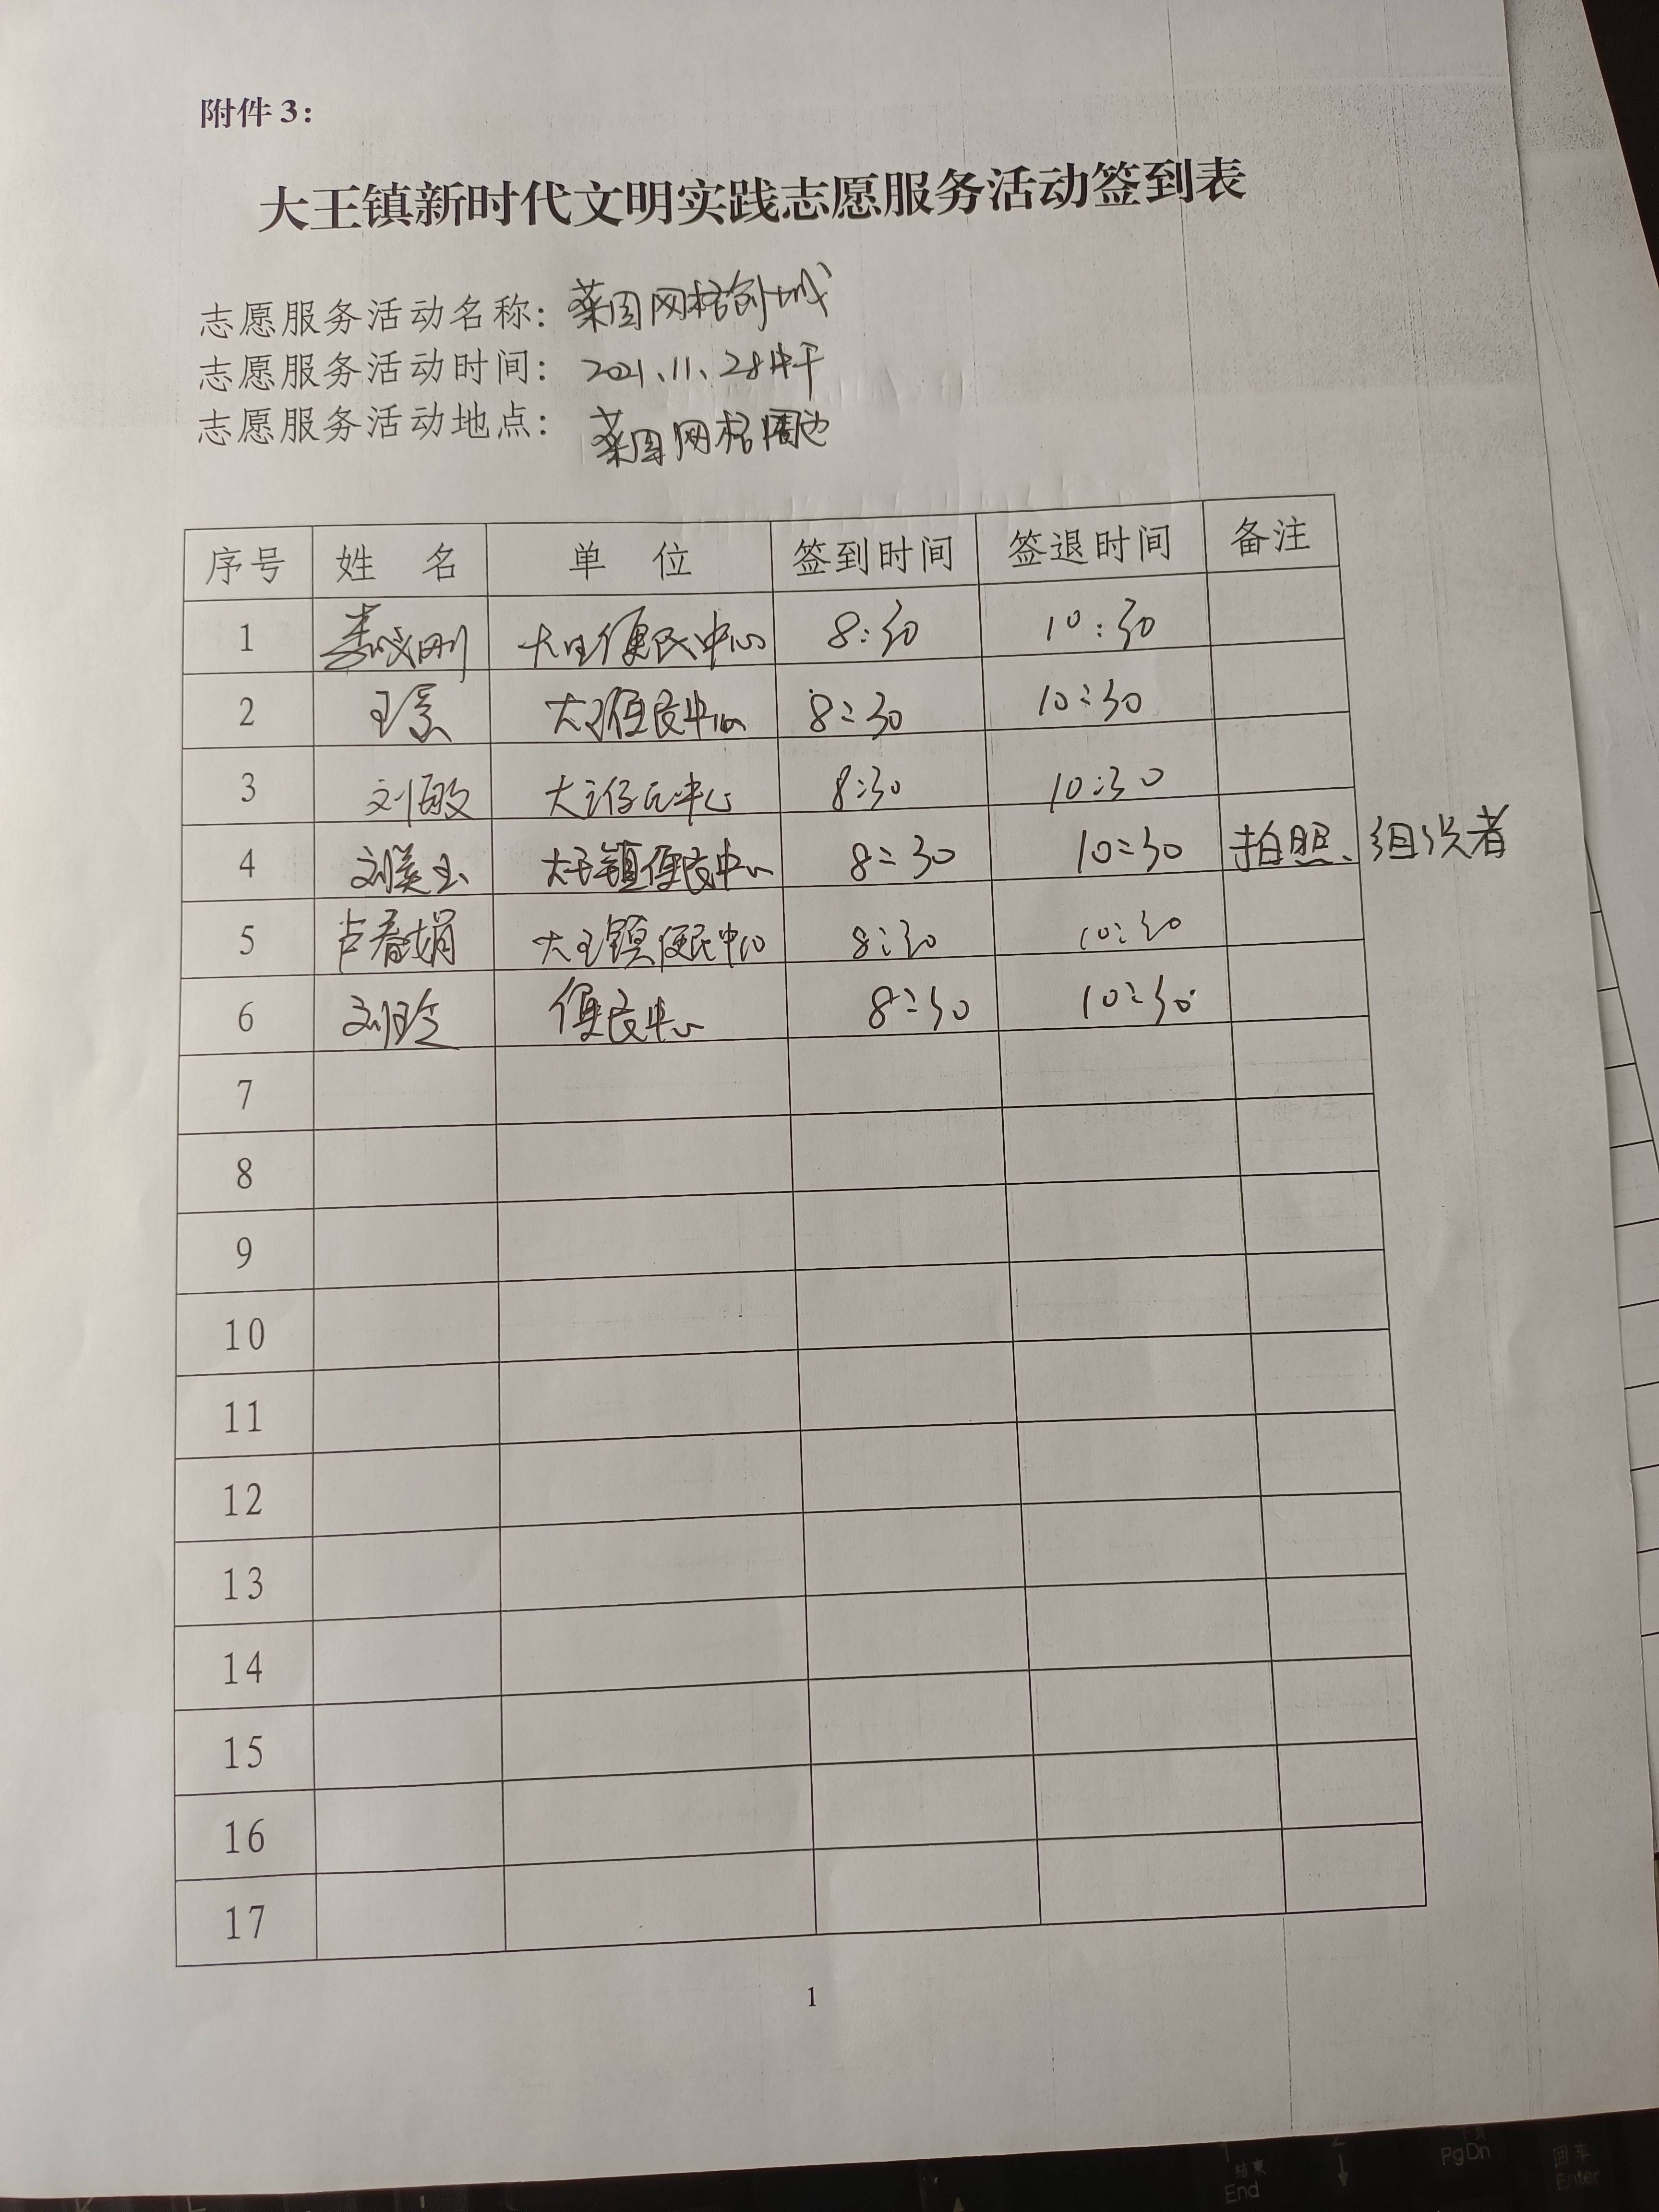 附件 3：
大王镇新时代文明实践志愿服务活动签到表
志愿服务活动名称：菜园网格创城
志愿服务活动时间：2021.11.28
志愿服务活动地点：菜园网格周边
序号 姓 名 单 位 签到时间 签退时间 备注
1 大王便民中心 8:30 10:30
2 王景 大王便民中心 8:30 10:30
3 刘敏 大王便民中心 8:30 10:30
4 刘美玉 大王镇便民中心 8:30 10:30 拍照、组织者
5 卢春娟 大王镇便民中心 8:30 10:30
6 刘玲 便民中心 8:30 10:30
7
8
9
10
11
12
13
14
15
16
17
1
结束
End
PgDn
回车
Enter